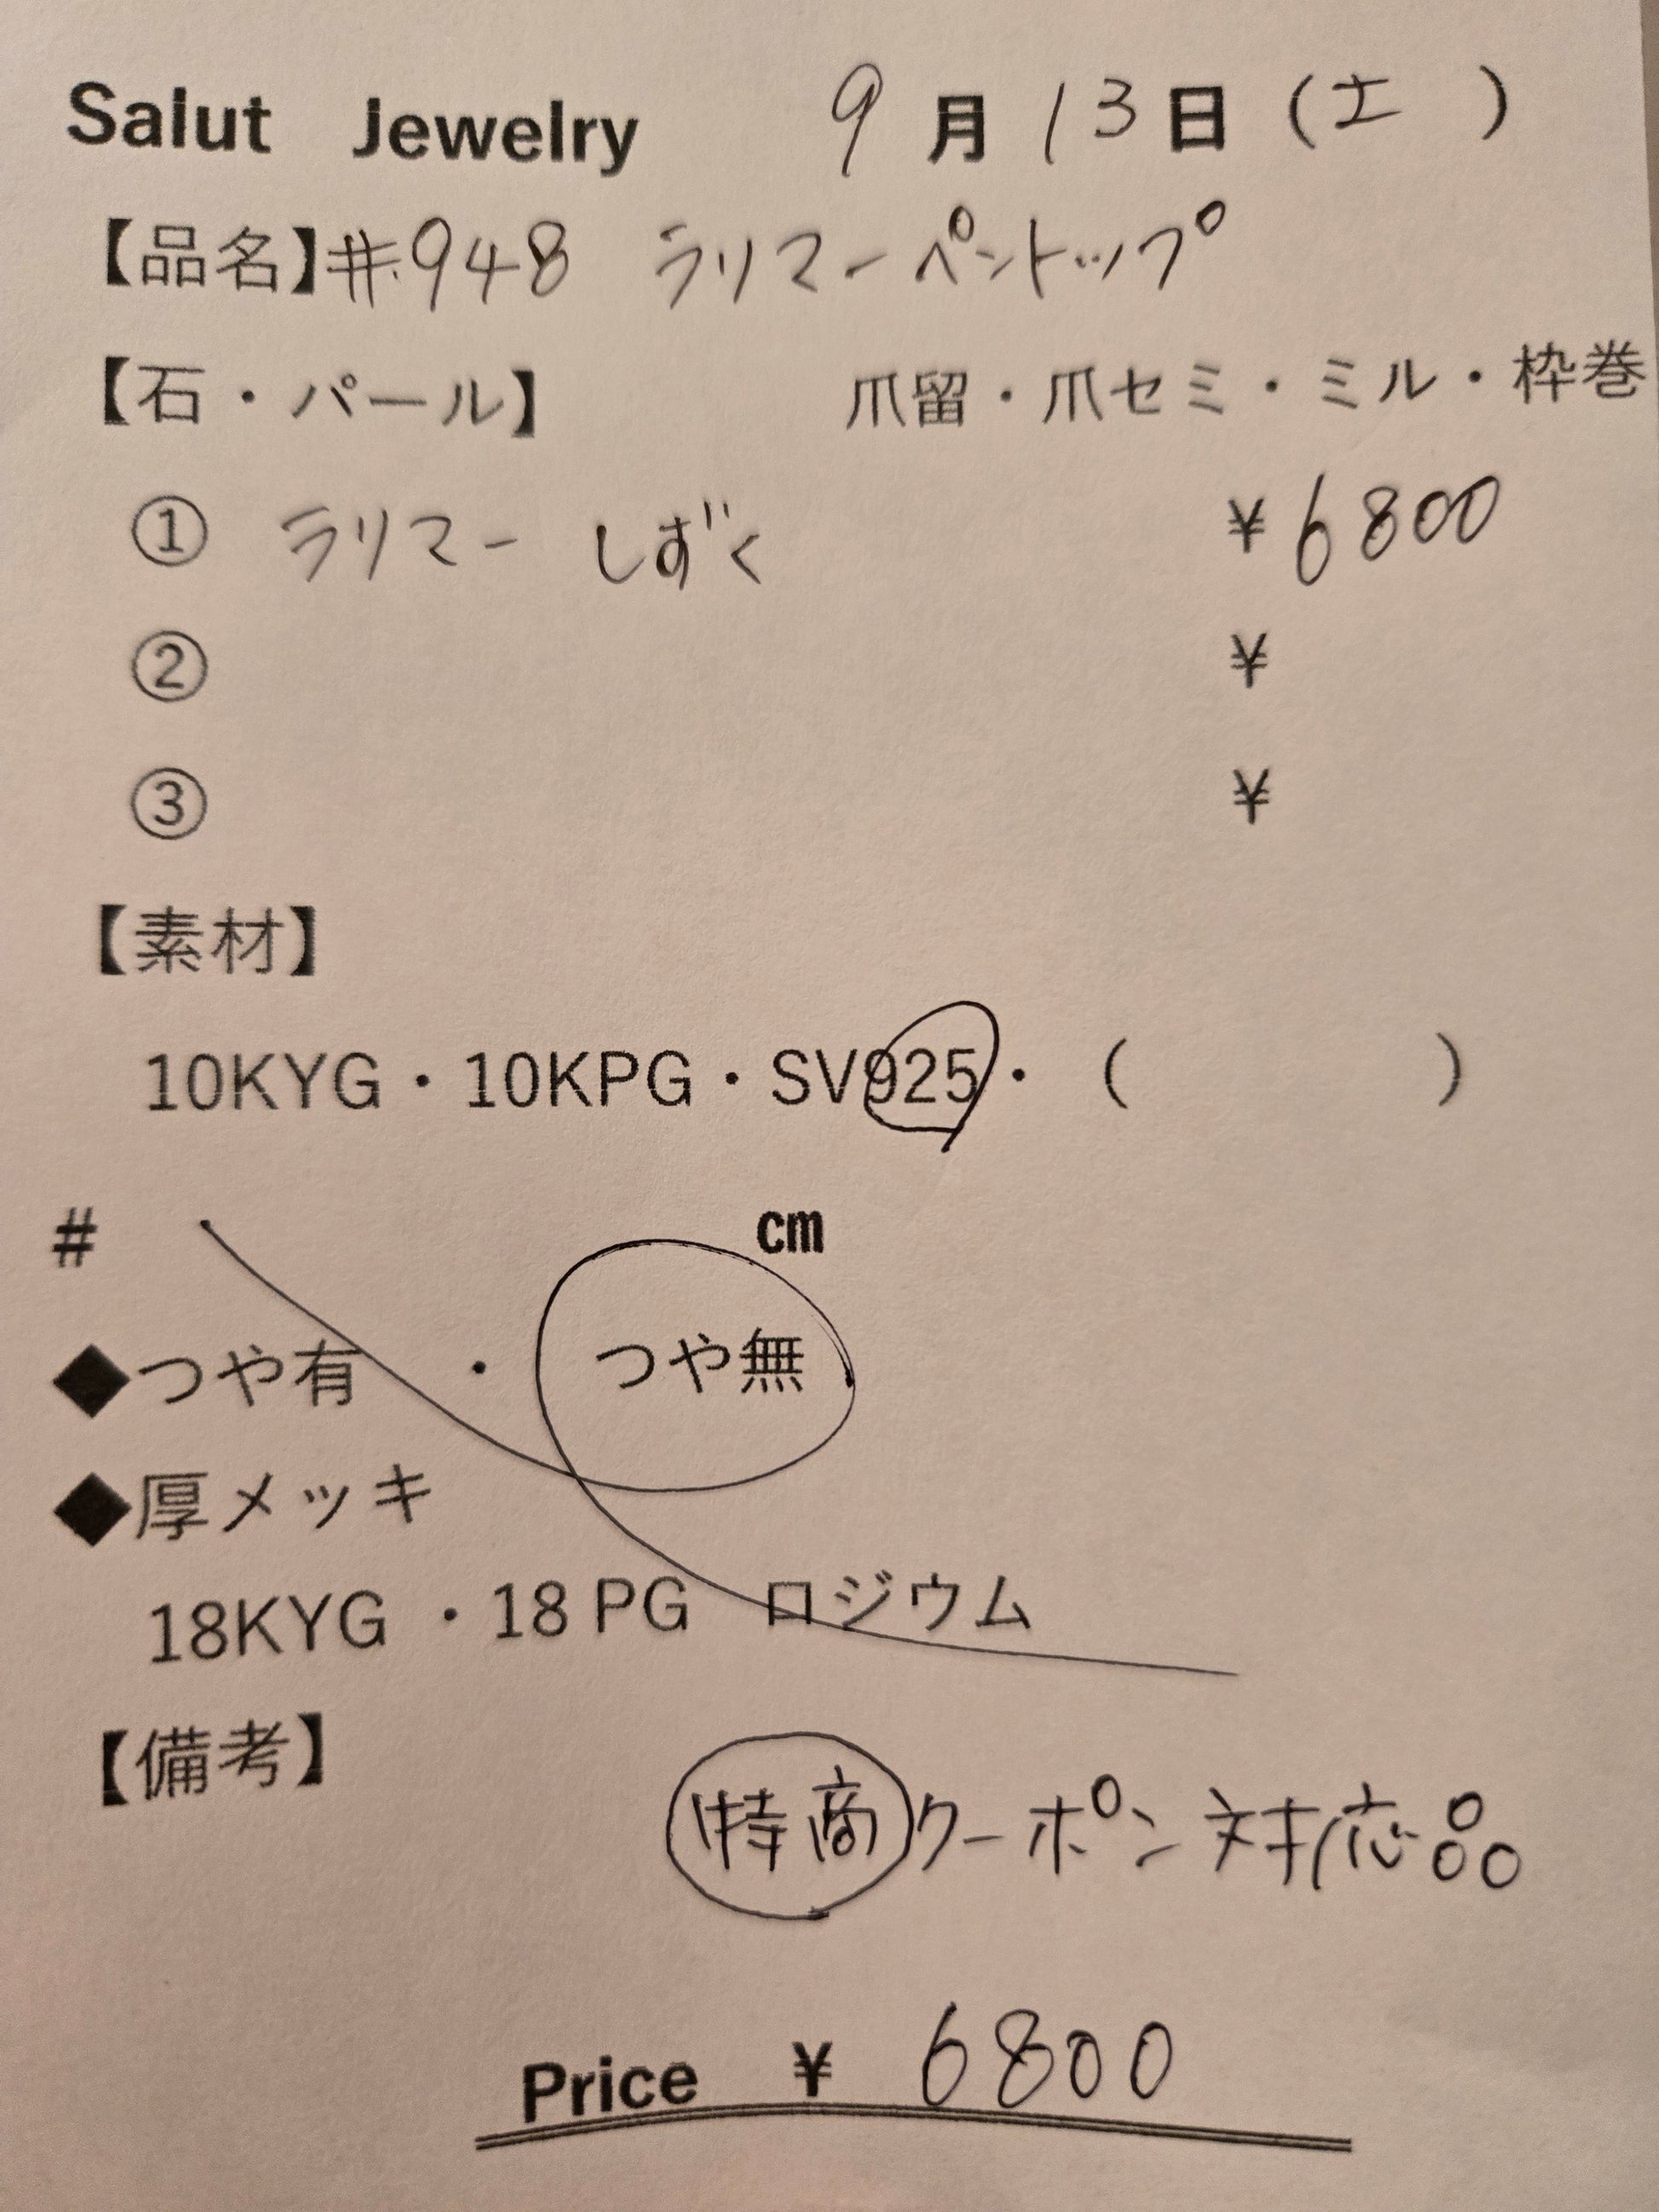 Salut Jewelry 9月13日(土)
【品名】#948 ラリマーペントップ
【石・パール】 爪留・爪セミ・ミル・枠巻
① ラリマー しずく ¥6800
② ¥
③ ¥
【素材】
10KYG・10KPG・SV925・( )
# cm
◆つや有 ・ つや無
◆厚メッキ
18KYG ・18 PG ロジウム
【備考】
特商クーポン対応品
Price ¥ 6800